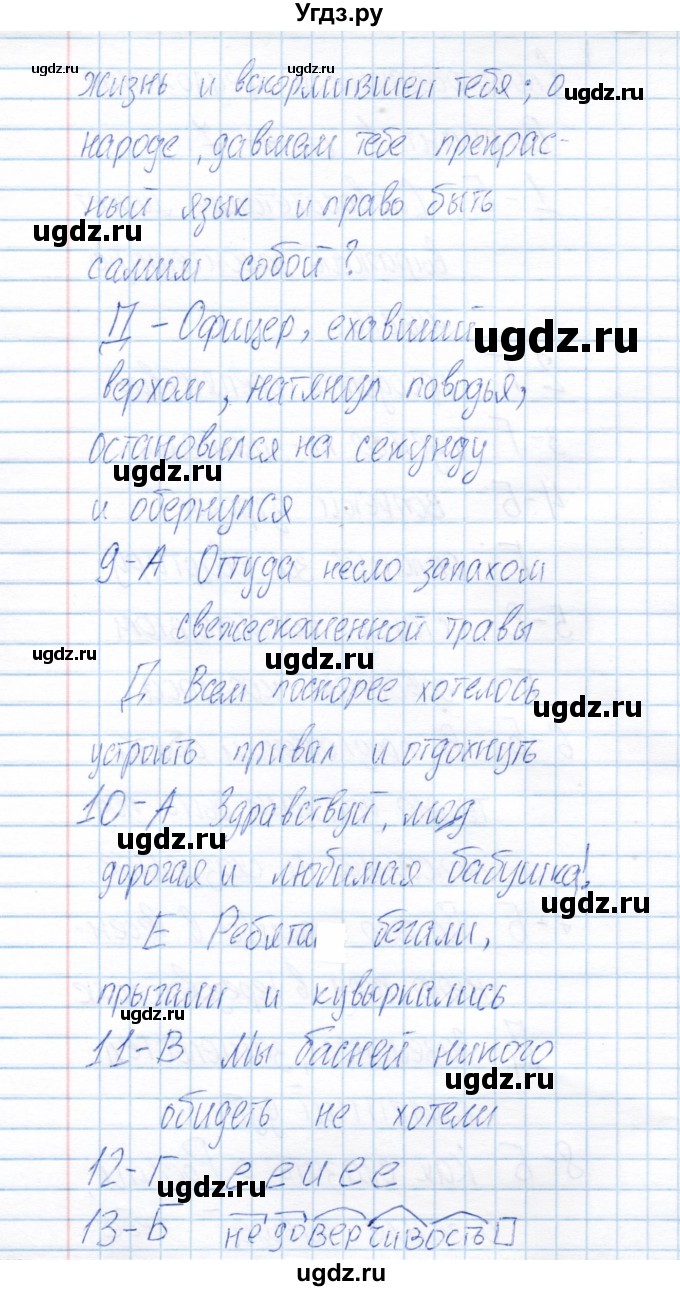 Угдз.ру
ugdz.ru ugdz.ru
жизнь и вскормившей тебя; о
ugdz.ru
народе, давшем тебе прекрас-
ный язык и право быть
ugdz.ru
самим собой?
Д - Офицер, ехавший
ugdz.ru
верхом, натянул поводья,
остановился на секунду
ugdz.ru
и обернулся
9-А Оттуда несло запахом
свежескошенной травы
ugdz.ru ugdz.ru
Д Всем поскорее хотелось
ugdz.ru
устроить привал и отдохнуть
10-А Здравствуй, моя
ugdz.ru
дорогая и любимая бабушка!
ugdz.ru
Е Ребята бегали,
прыгали и кувыркались
ugdz.ru
11-В Мы басней никого
ugdz.ru
обидеть не хотели
12-Г е е и е е
ugdz.ru
13-Б недоверчивость
ugdz.ru